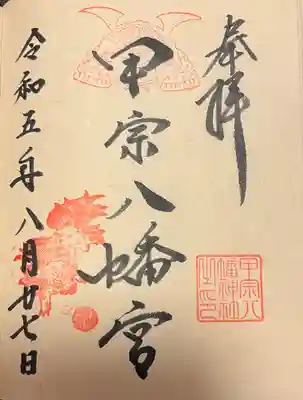 奉拝
甲宗八幡宮
甲宗八
幡神社
之印
令和五年八月廿七日